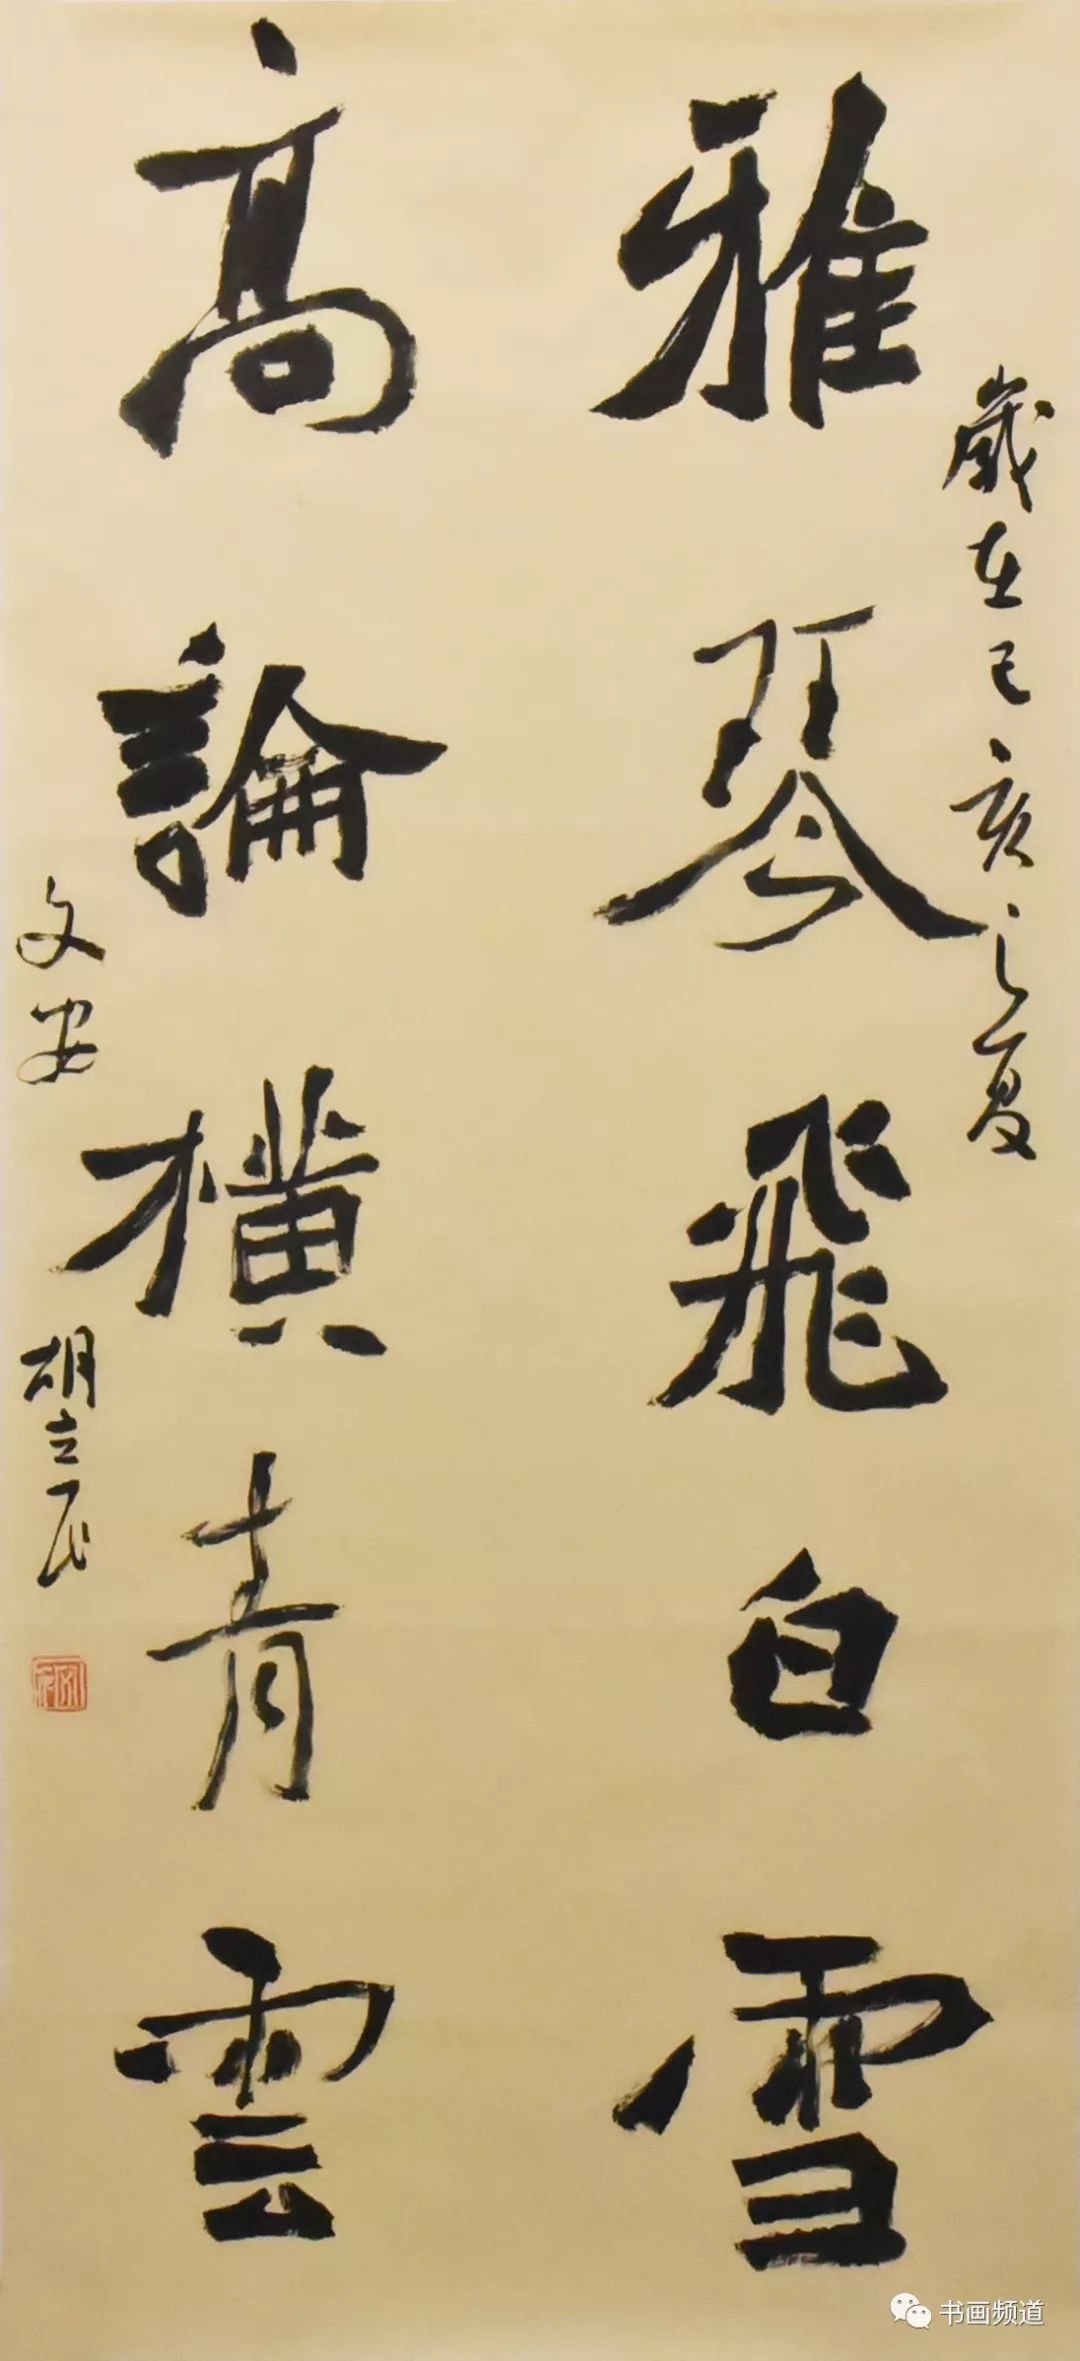 歲在己亥之夏
雅琴飛白雪
高論橫青雲
文安
胡立民
书画频道